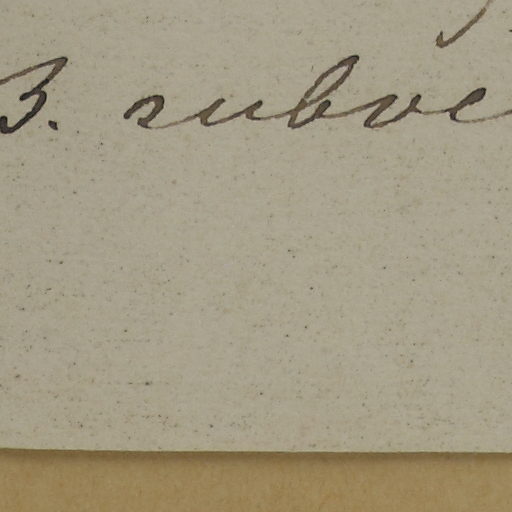 B. subve